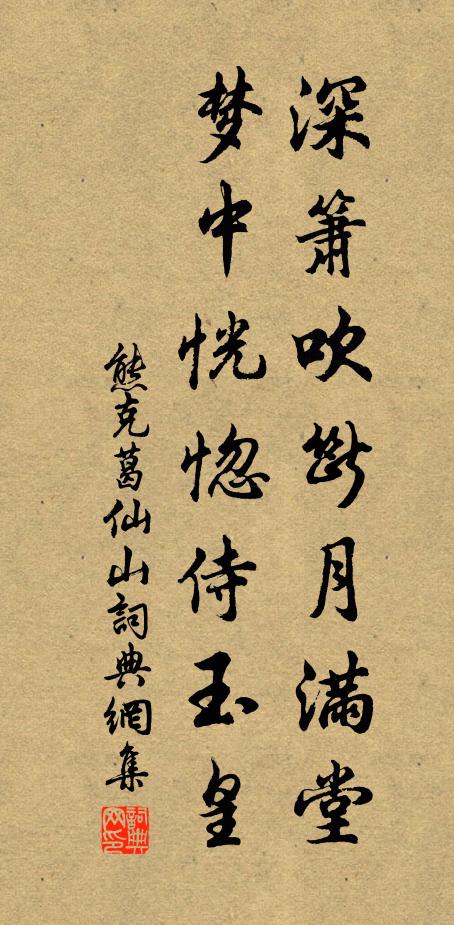 深箫吹断月满堂
梦中恍惚侍玉皇
熊克葛仙山詞典網集
詞典網印